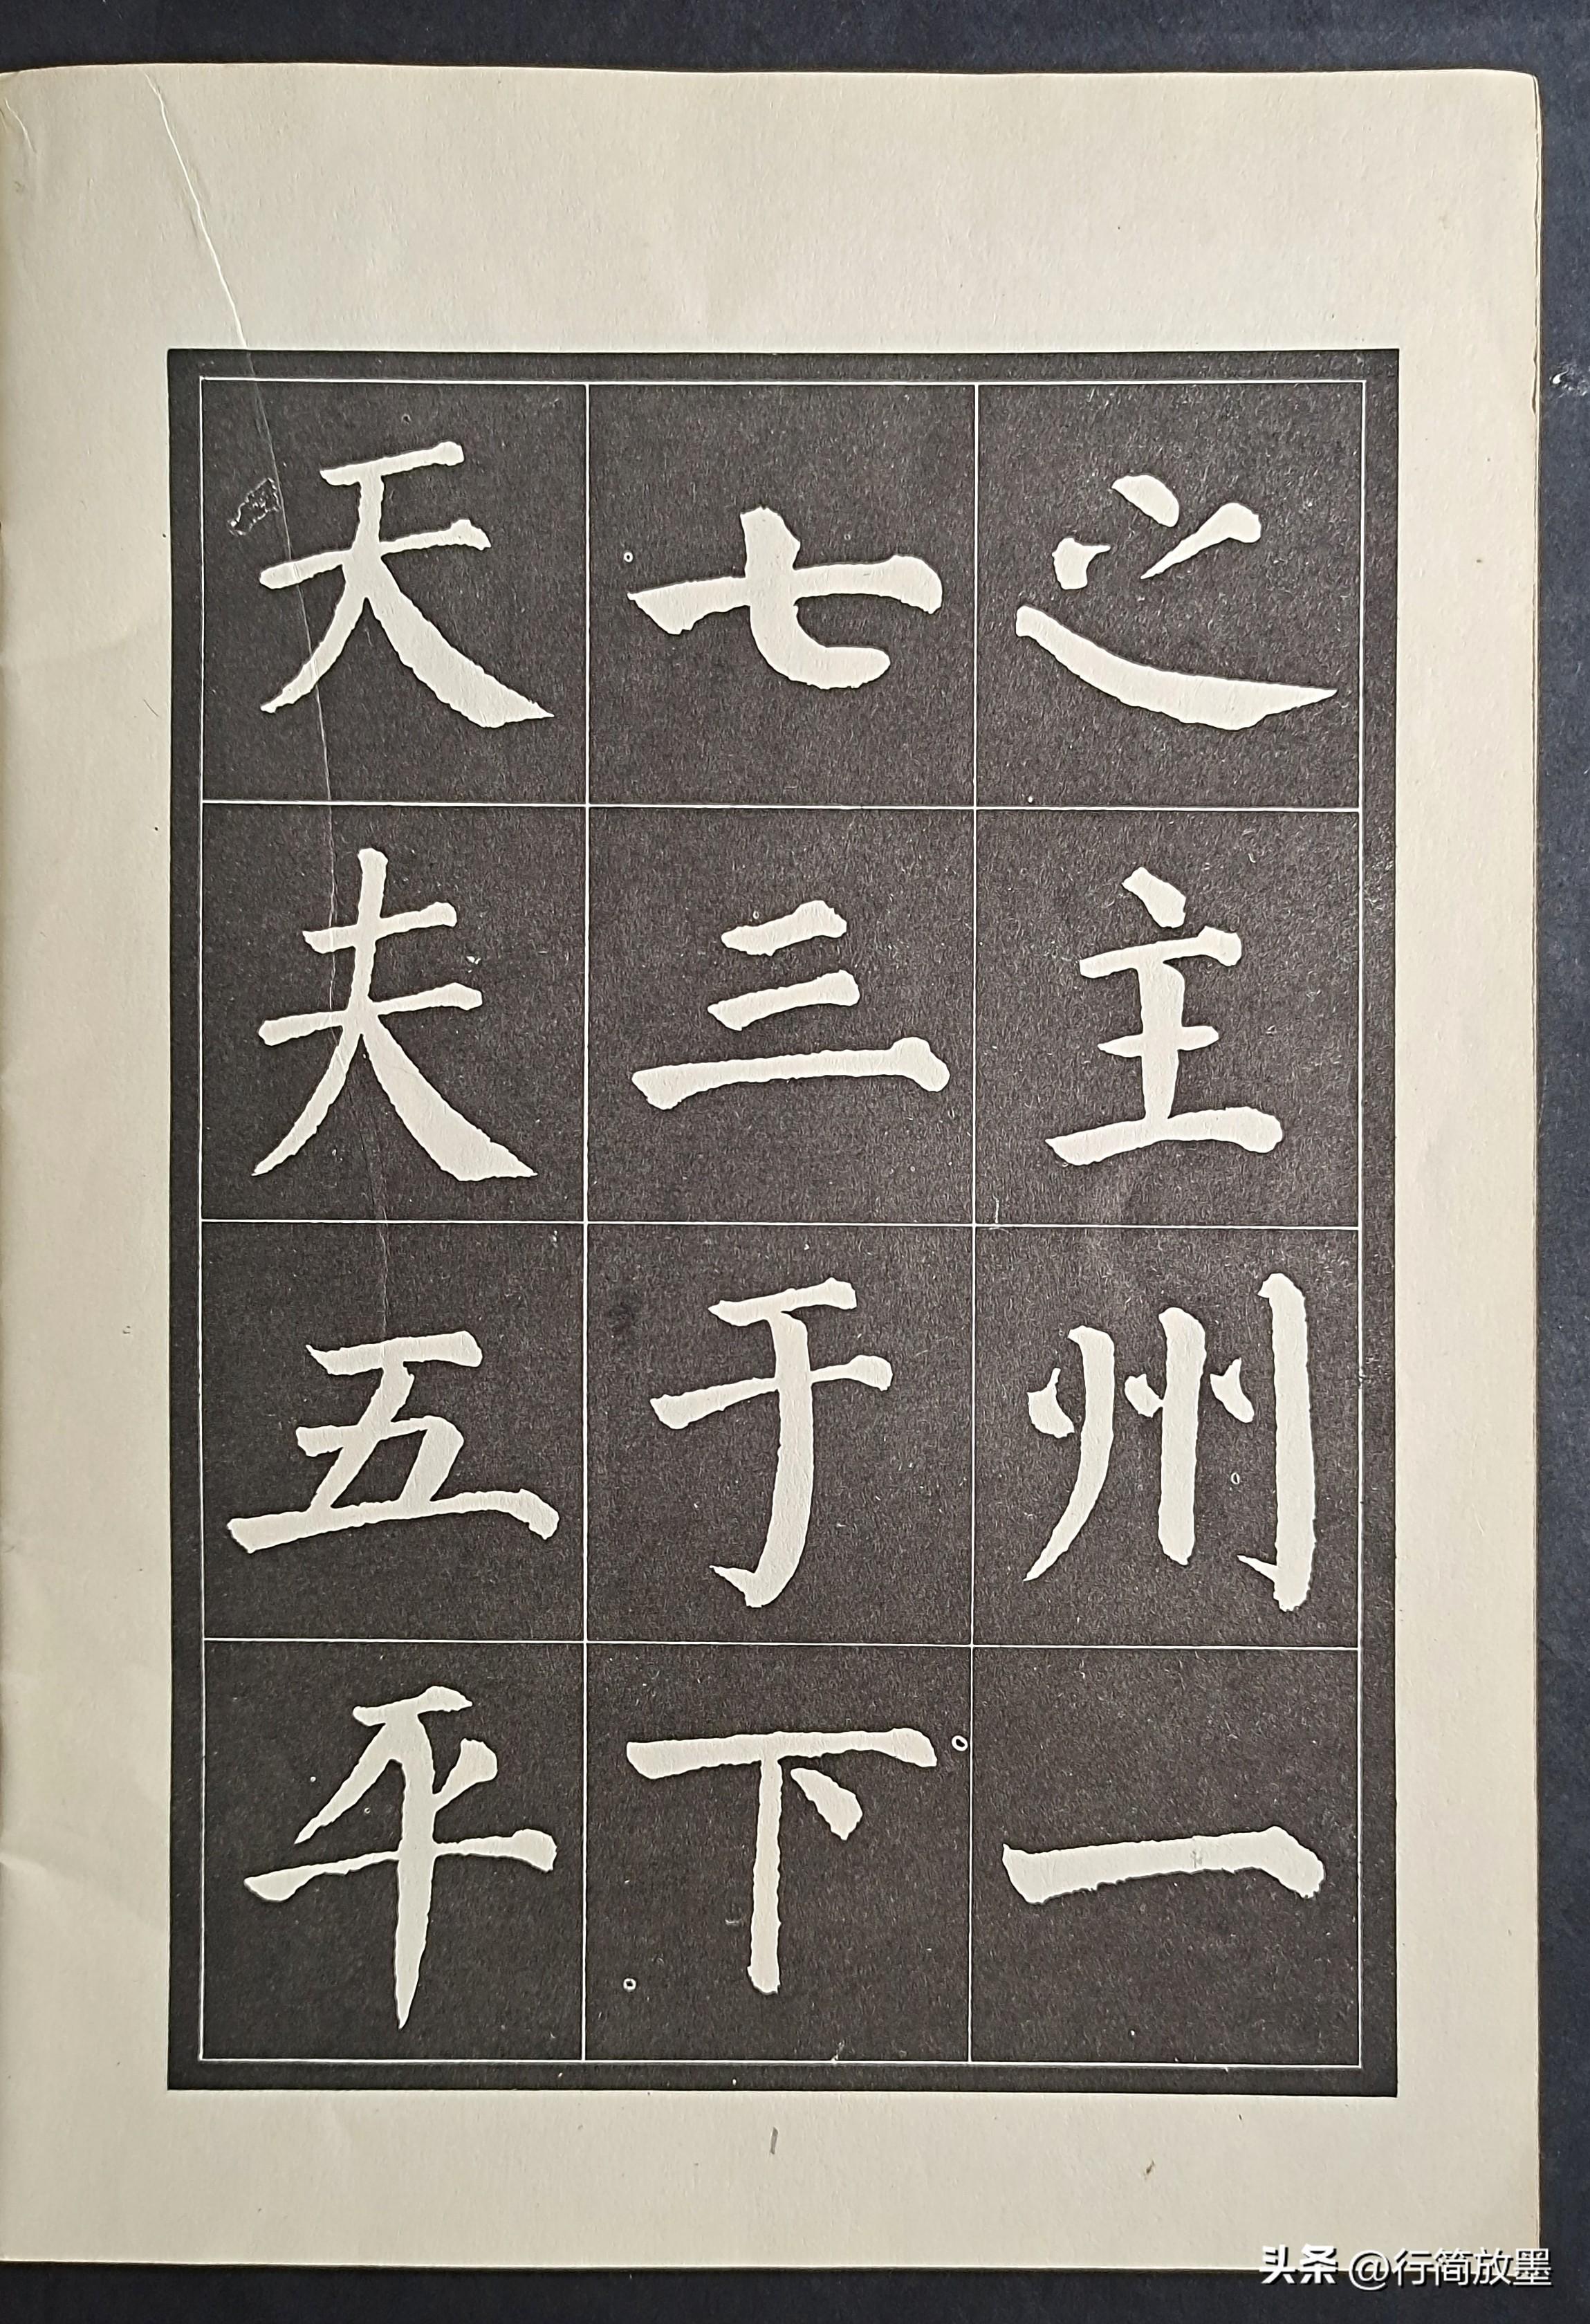 之主州一
七三于下
天夫五平
1
头条 @行简放墨